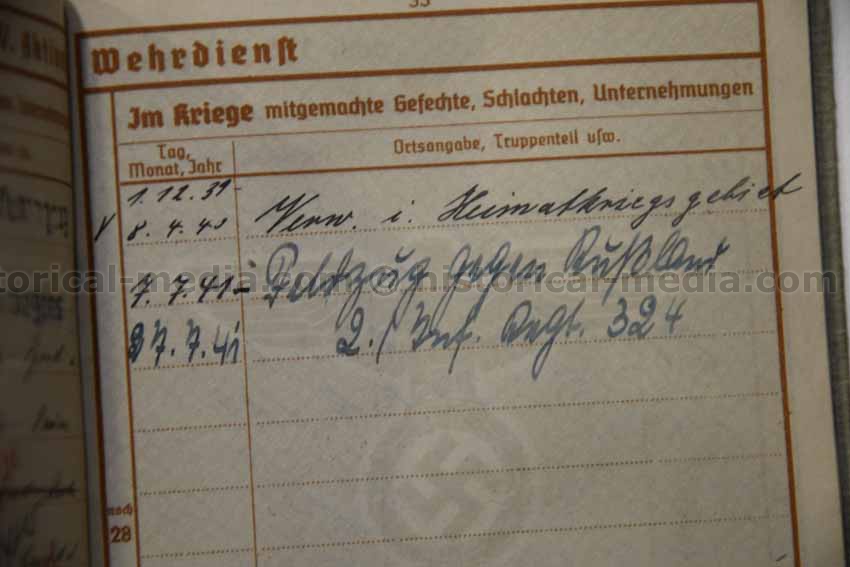 33
Wehrdienst
Im Kriege mitgemachte Gefechte, Schlachten, Unternehmungen
Tag, Monat, Jahr
Ortsangabe, Truppenteil usw.
1.12.39-
8.4.40 Verw. i. Heimatkriegsgebiet
7.7.41- Feldzug gegen Rußland
27.7.41 2./Inf. Regt. 324
historical-media.com historical-media.com
noch
28